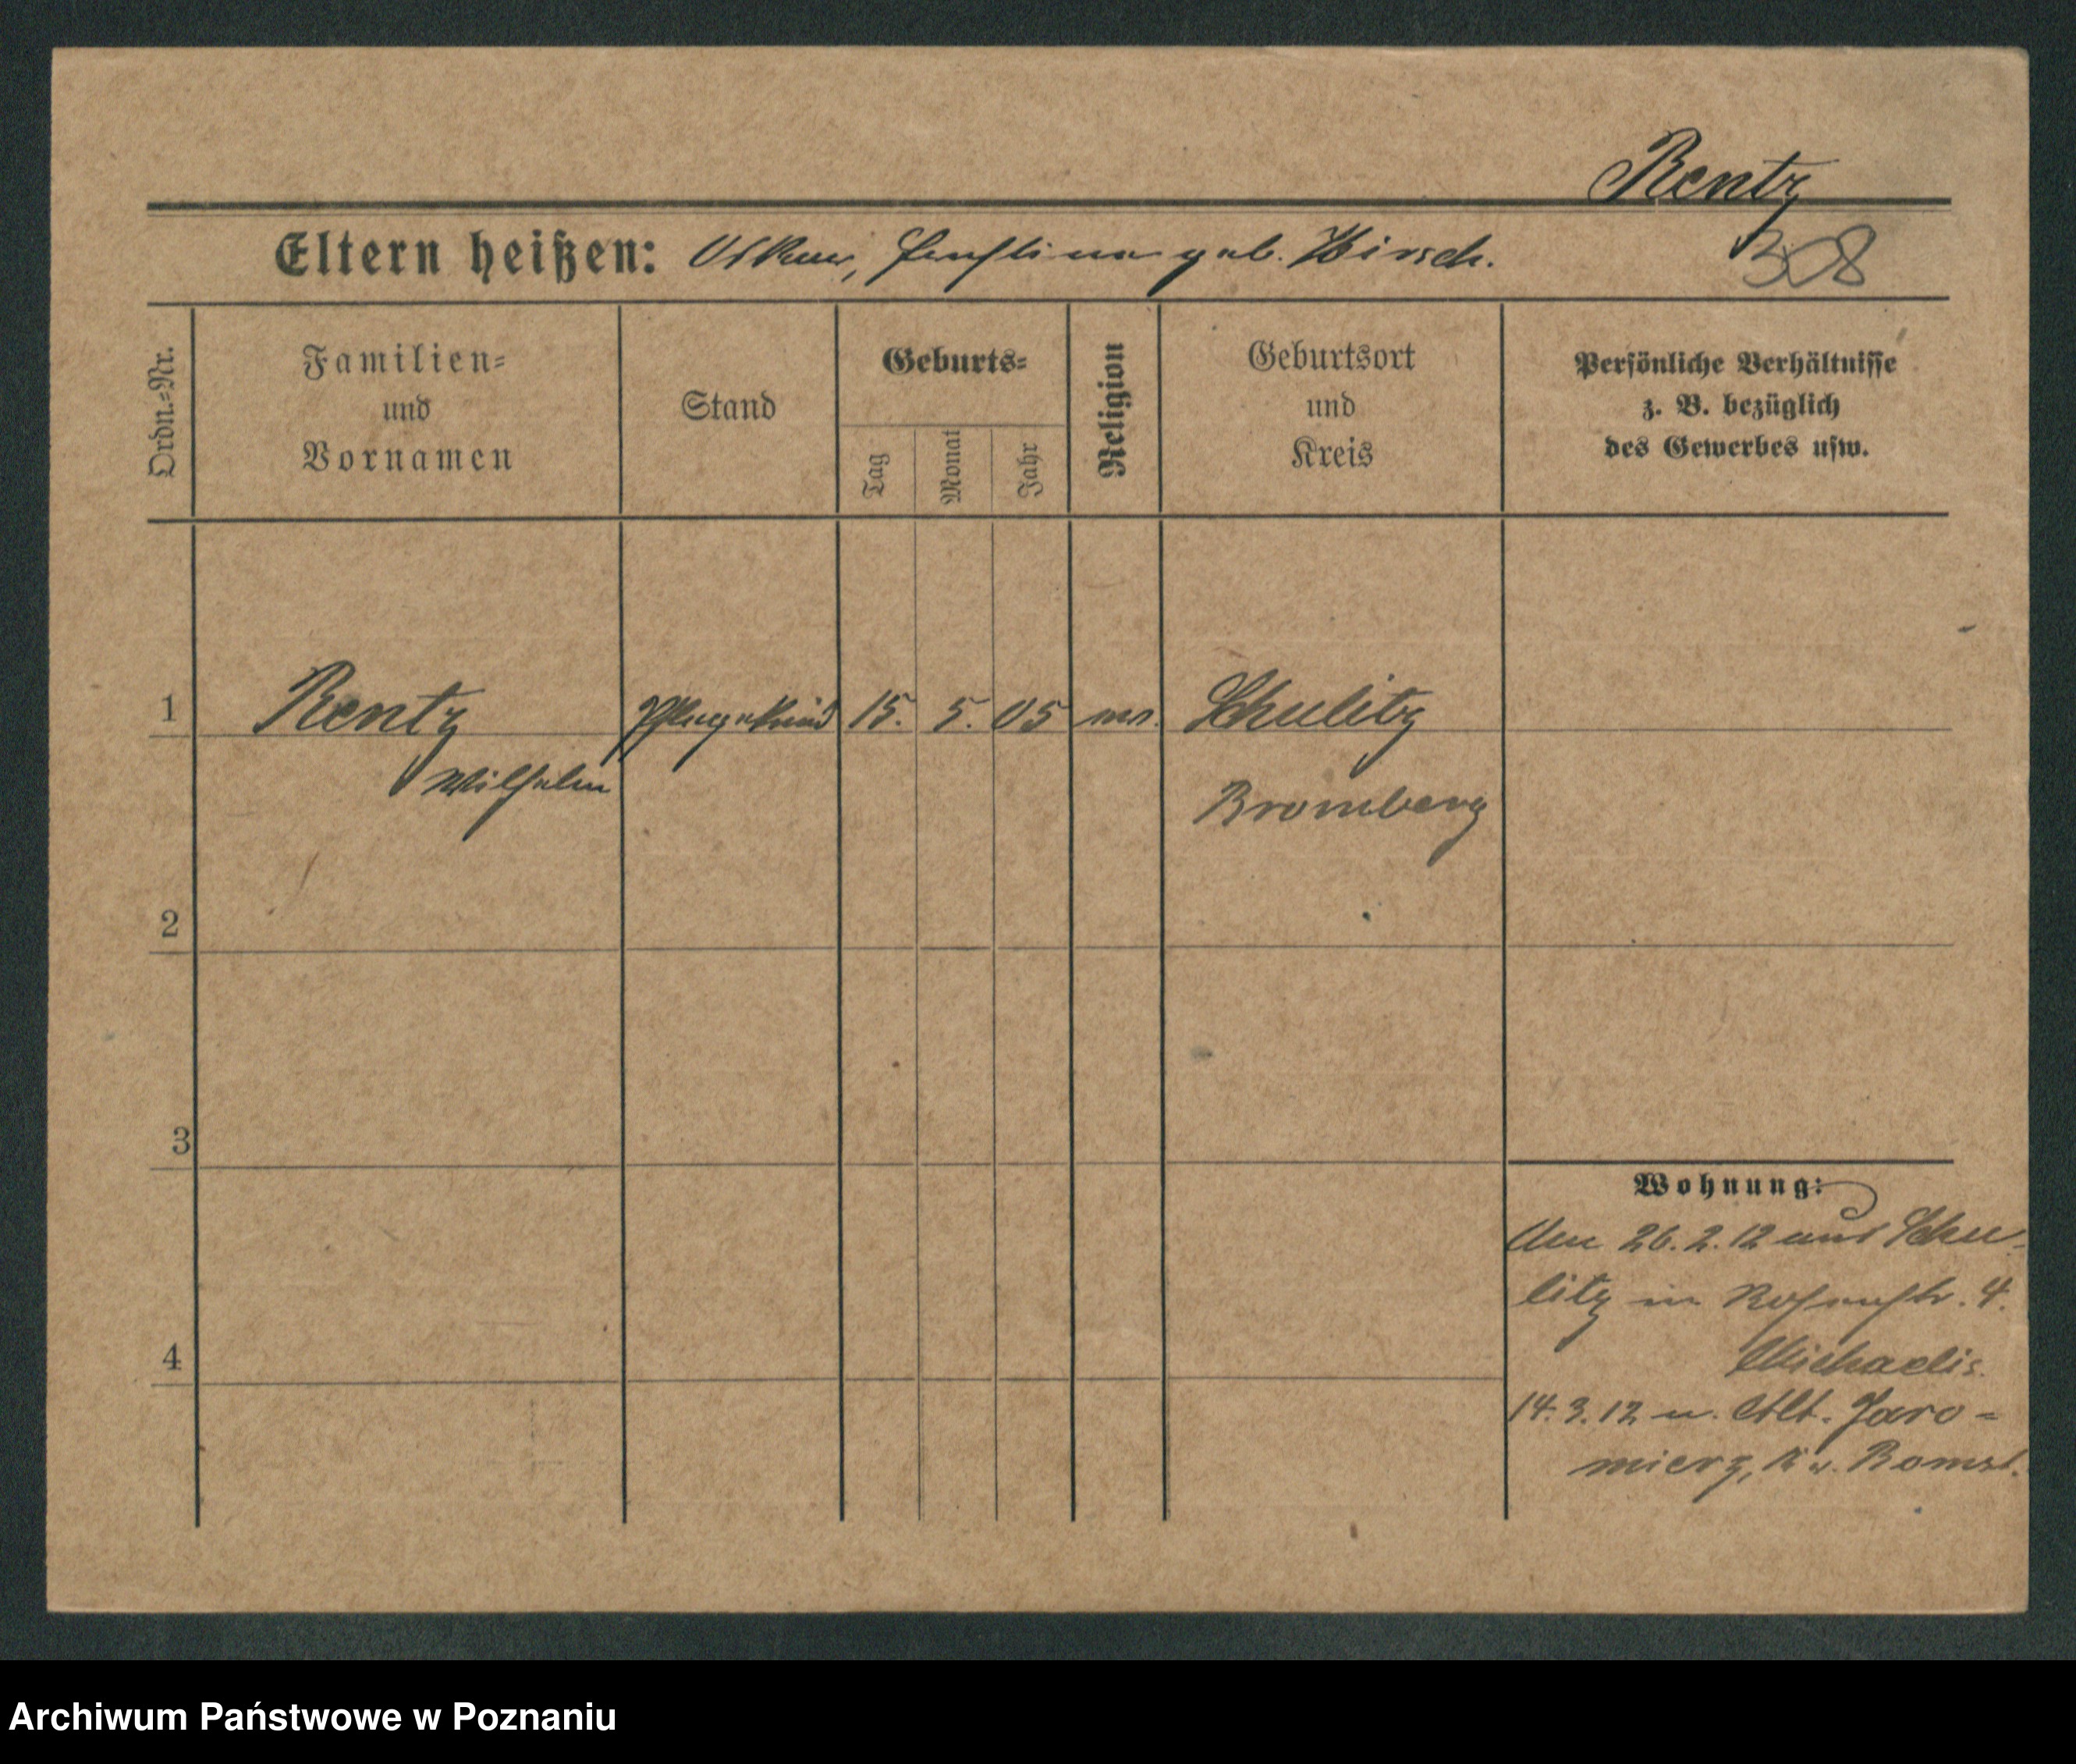 Rentz
Eltern heißen: Oskar, geb. Hirsch.
308
Ordn.=Nr.
Familien=
und
Vornamen
Stand
Geburts=
Tag
Monat
Jahr
Religion
Geburtsort
und
Kreis
Persönliche Verhältnisse
z. B. bezüglich
des Gewerbes usw.
1 Rentz Pflegekind 15. 5. 05 Schulitz
Wilhelm
Bromberg
2
3
4
Wohnung:
26. 2. 12 aus Schu-
litz in Rosenstr. 4.
Michaelis.
14. 3. 12 n. Alt. Jaro=
mierz, Kr. Bomst.
Archiwum Państwowe w Poznaniu